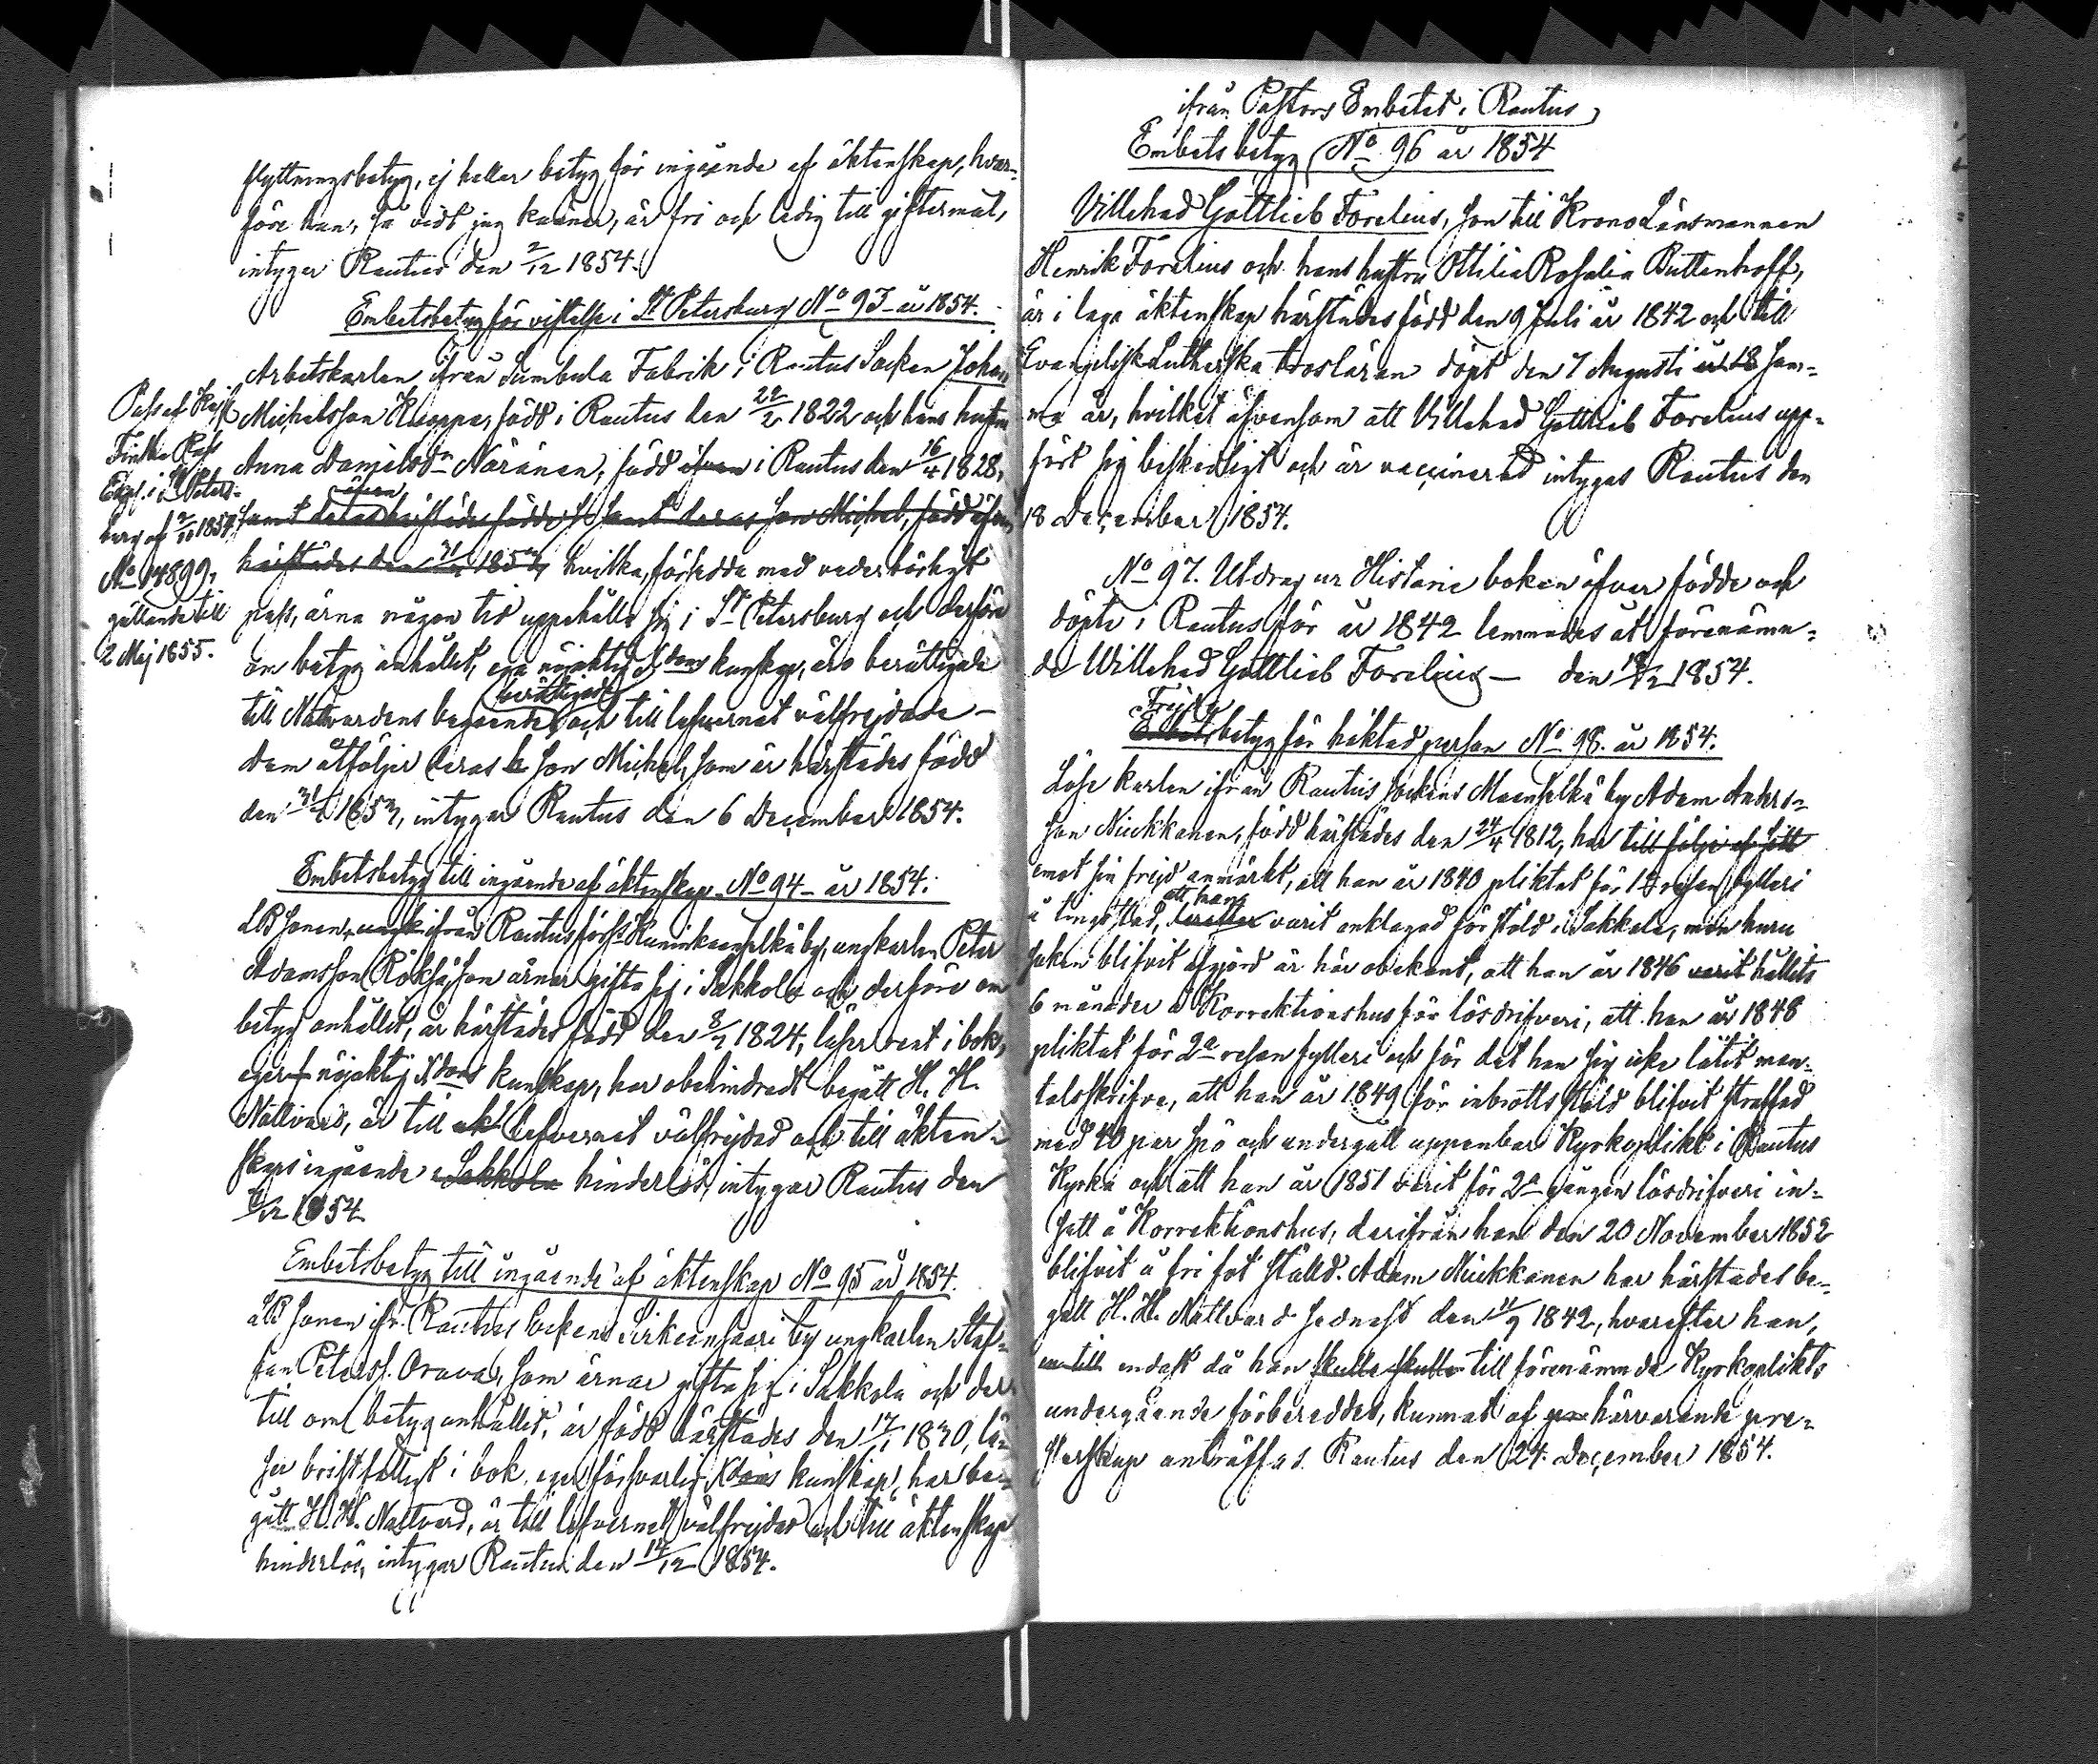 flyttningsbetyg, ej heller betyg för ingående af äktenskap, hvar-
före han, så vidt jag känner, är fri och ledig till giftermål,
intygar Rautus den 2/12 1854.
Embetsbetyg för vistelse i St Petersburg No 93 år 1854.
Arbetskarlen ifrån Sumbula Fabrik i Rautus Socken Johan
Michelsson Kaappa, född i Rautus den 22/2 1822 och hans hustru
Anna Danielsdr Näränen, född i Rautus den 16/4 1828,
samt deras härstädes födde samt deras son Michel, född äfven
äfven
härstädes den 31/ 1853, hvilka, försedda med vederbörligt
pass, ärna någon tid uppehålla sig i St Petersburg och derföre
om betyg anhållit, ega nöjaktig Xdoms kunskap, äro berättigade
till Nattvardens begående och till lefvernet välfrejdade –
berättigade
dem åtföljer deras son Michel, som är härstädes född
den 31/ 1853, intygar Rautus den 6 December 1854.
Pass af
Finska Pass
Exp. i St Peters-
burg af 2/11 1854,
No 14899,
gällande till
2 Maj 1855.
Embetsbetyg till ingående af äktenskap No 94 – år 1854.
LBsonen, ifrån Rautus förs. by, ungkarlen Peter
Adamsson Röksä, som ärnar gifta sig i Sakkola och derföre om
betyg anhållit, är härstädes född den 8/ 1824, läser rent i bok,
eger nöjaktig Xdoms kunskap, har obehindradt begått H. H.
Nattvard, är till lefvernet välfrejdad och till äkten-
skaps ingående Sakkola hinderlös, intygar Rautus den
/12 1854
Embetsbetyg till ingående af äktenskap No 95 år 1854.
LBsonen ifr. Rautus Sockens Sirkiensaari by ungkarlen Staf-
fan Peterss. Orava, som ärnar gifta sig i Sakkola och der
till om betyg anhållit, är född härstädes den 17/1 1830, lä-
ser bristfälligt i bok, eger försvarlig Xdoms kunskap, har be-
gått H. H. Nattvard, är till lefvernet välfrejdad och till äktenskap
hinderlös, intygar Rautus den 14/12 1854.
ifrån Pastors Embetet i Rautus,
Embetsbetyg No 96 år 1854
Villehad Gottlieb Forelius, son till Krono Länsmannen
Henrik Forelius och hans hustru Ottilia Rosalia Buttenhoff,
är i laga äktenskap härstädes född den 9 Juli år 1842 och till
Evangelisk Lutherska trosläran döpt den 7 Augusti år 18 sam-
ma år, hvilket äfvensom att Villehad Gottlieb Forelius upp-
fört sig beskedligt och är vaccinerad intygas Rautus den
18 December 1854.
No 97. Utdrag ur Historie boken öfver födde och
döpte i Rautus för år 1842 lemnades åt förenämn-
de Willehad Gottlieb Forelius – den 18/12 1854.
Frejde
Embetsbetyg för häktad person No 98. år 1854.
Löse karlen ifrån Rautus sockens Maanselkä by Adam Anders-
son Niukkanen, född härstädes den 24/4 1812, har till följe af sitt
emot sin frejd anmärkt, att han år 1840 pliktat för 1sta resan fylleri
att han
å tingsstad, derefter varit anklagad för stöld i Sakkola, men huru
saken blifvit afgjord är här obekant, att han år 1846 varit hållits
6 månader å Korrektionshus för lösdrifveri, att han år 1848
pliktat för 2a resan fylleri och för det han sig icke låtit man-
talsskrifva, att han år 1849 för inbrotts stöld blifvit straffad
med 40 par spö och undergått uppenbar Kyrkoplikt i Rautus
Kyrka och att han år 1851 varit för 2a gången lösdrifveri in-
satt å Korrektionshus, derifrån han den 20 November 1852
blifvit å fri fot ställd. Adam Niukkanen har härstädes be-
gått H. H. Nattvard sednast den 11/9 1842, hvarefter han,
endast då han skulle skulle till förenämnde Kyrkoplikts
undergående förberedder, kunnat af härvarande pre-
sterskap anträffas. Rautus den 24 December 1854.